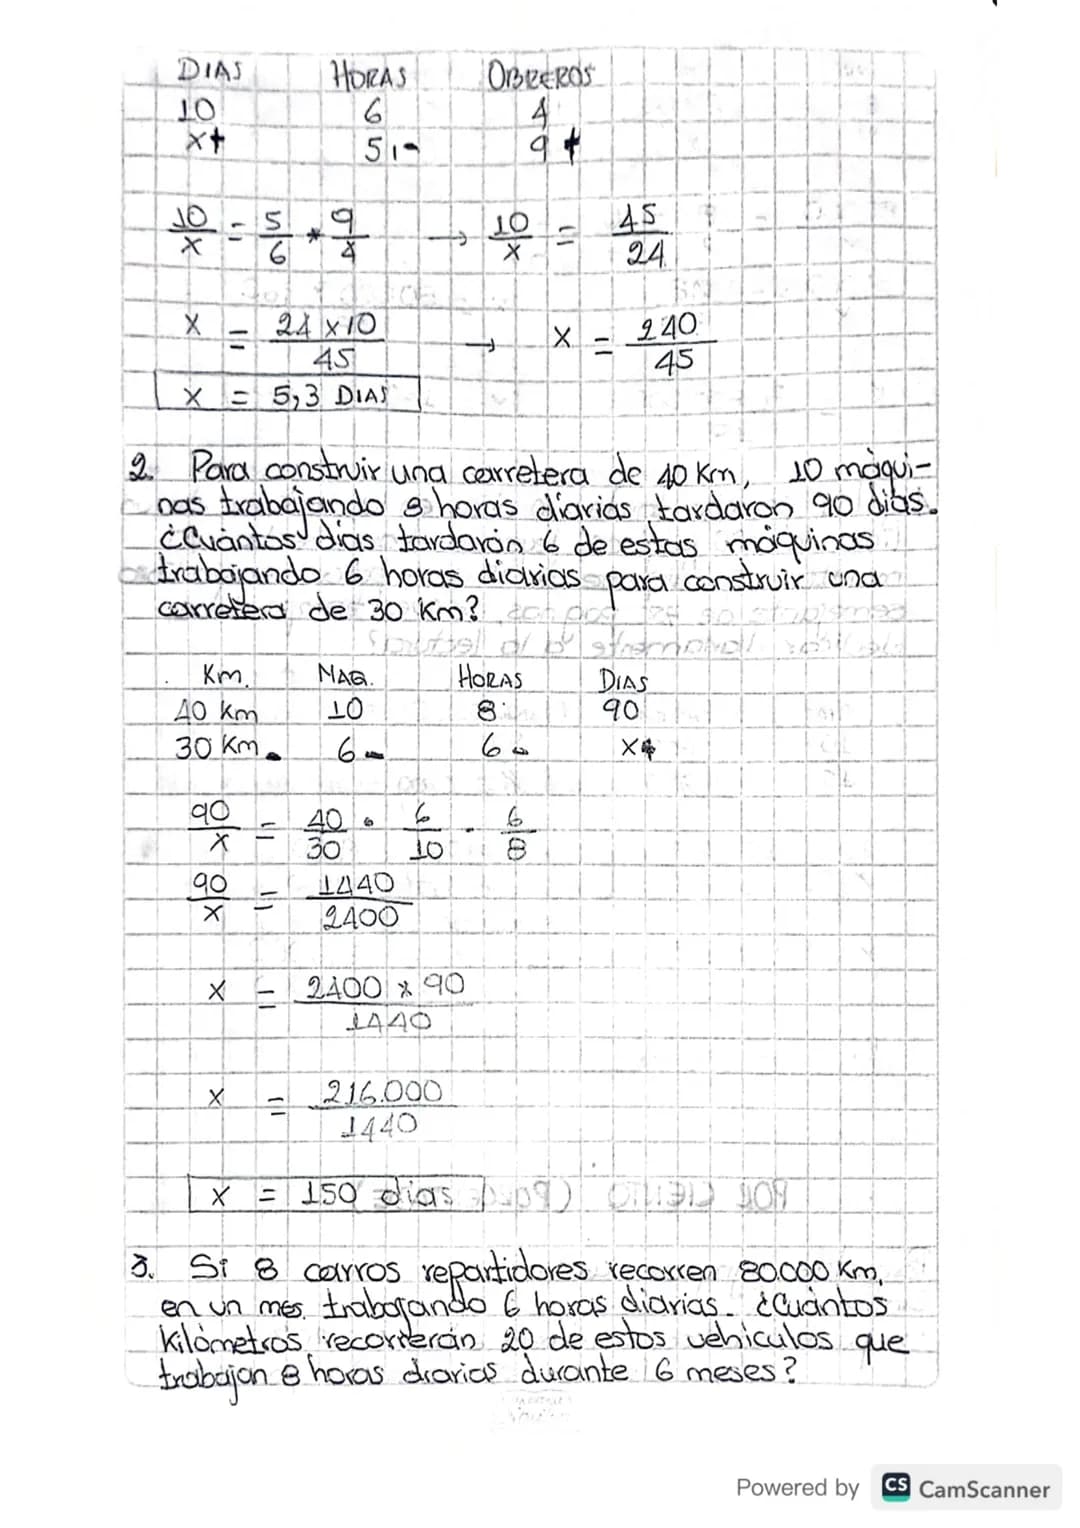 DIAS HORAS OBREROS
10 6 4
x+ 5 - 9 +
10/x = 5/6 * 9/4 → 10/x = 45/24
x = 24 x 10/45 → x = 240/45
x = 5,3 DIAS
2. Para construir una carretera de 40 Km, 10 máqui-
nas trabajando 8 horas diarias tardaron 90 días.
¿Cuántos días tardarán 6 de estas máquinas
trabajando 6 horas diarias para construir una
carretera de 30 Km?
Km. MAQ. HORAS DIAS
40 Km 10 8 90
30 Km - 6 - 6 - x+
90/x = 40/30 · 6/10 · 6/8
90/x = 1440/2400
x = 2400 * 90/1440
x = 216.000/1440
x = 150 dias
3. Si 8 carros repartidores recorren 80.000 Km,
en un mes. trabajando 6 horas diarias. ¿Cuántos
Kilómetros recorrerán 20 de estos vehiculos que
trabajan 8 horas diarias durante 6 meses?
Powered by CS CamScanner